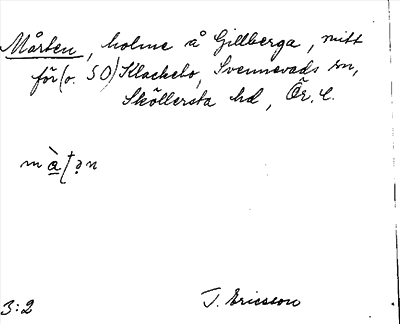 Mårten, holme å Gillberga, mitt
för (o. SO) Klackebo, Svennevads sn,
Sköllersta hd, Ör. l.
3:2 J. Ericsson